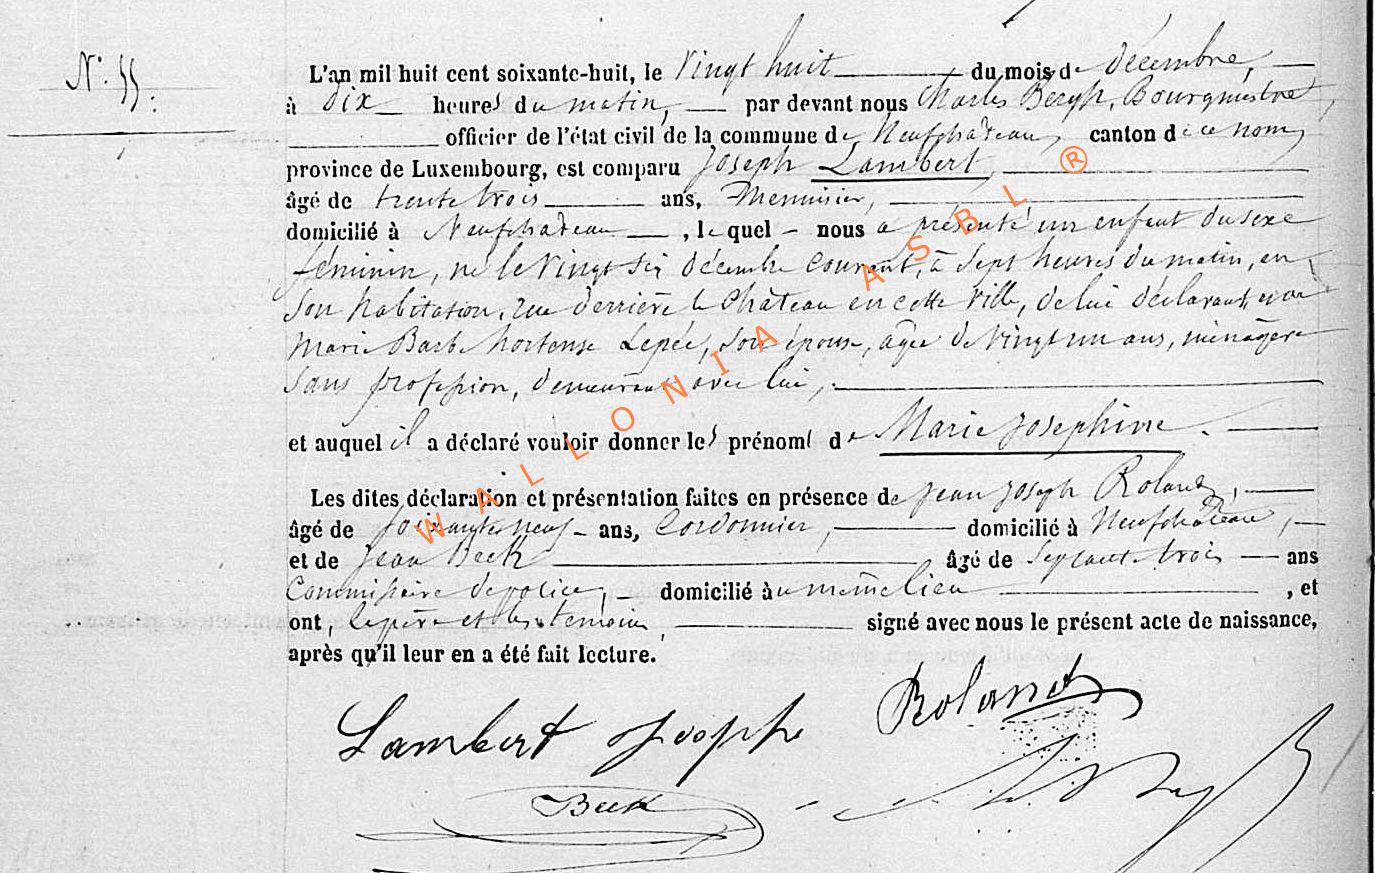 N° 55.
L'an mil huit cent soixante-huit, le Vingt huit du mois de décembre,
à dix heures du matin, par devant nous Charles Bergh, Bourgmestre,
officier de l'état civil de la commune de Neufchâteau, canton de ce nom,
province de Luxembourg, est comparu Joseph Lambert,
âgé de trente trois ans, Menuisier,
domicilié à Neufchateau, lequel nous a présenté un enfant du sexe
féminin, né le Vingt six décembre courant, à Sept heures du matin, en
Son habitation, rue derrière le Château en cette Ville, de lui déclarant, et de
Marie Barbe hortense Lepée, son épouse, âgée de Vingt un ans, ménagère
Sans profession, demeurant avec lui,
et auquel il a déclaré vouloir donner les prénoms de Marie Josephine.
Les dites déclaration et présentation faites en présence de Jean Joseph Roland,
âgé de soixante neuf ans, Cordonnier, domicilié à Neufchâteau,
et de Jean Beck âgé de Septante trois ans
Commissaire de police, domicilié au même lieu, et
ont, le père et les témoins, signé avec nous le présent acte de naissance,
après qu'il leur en a été fait lecture.
Lambert Joseph
Roland
Beck
WALLONIA ASBL ®